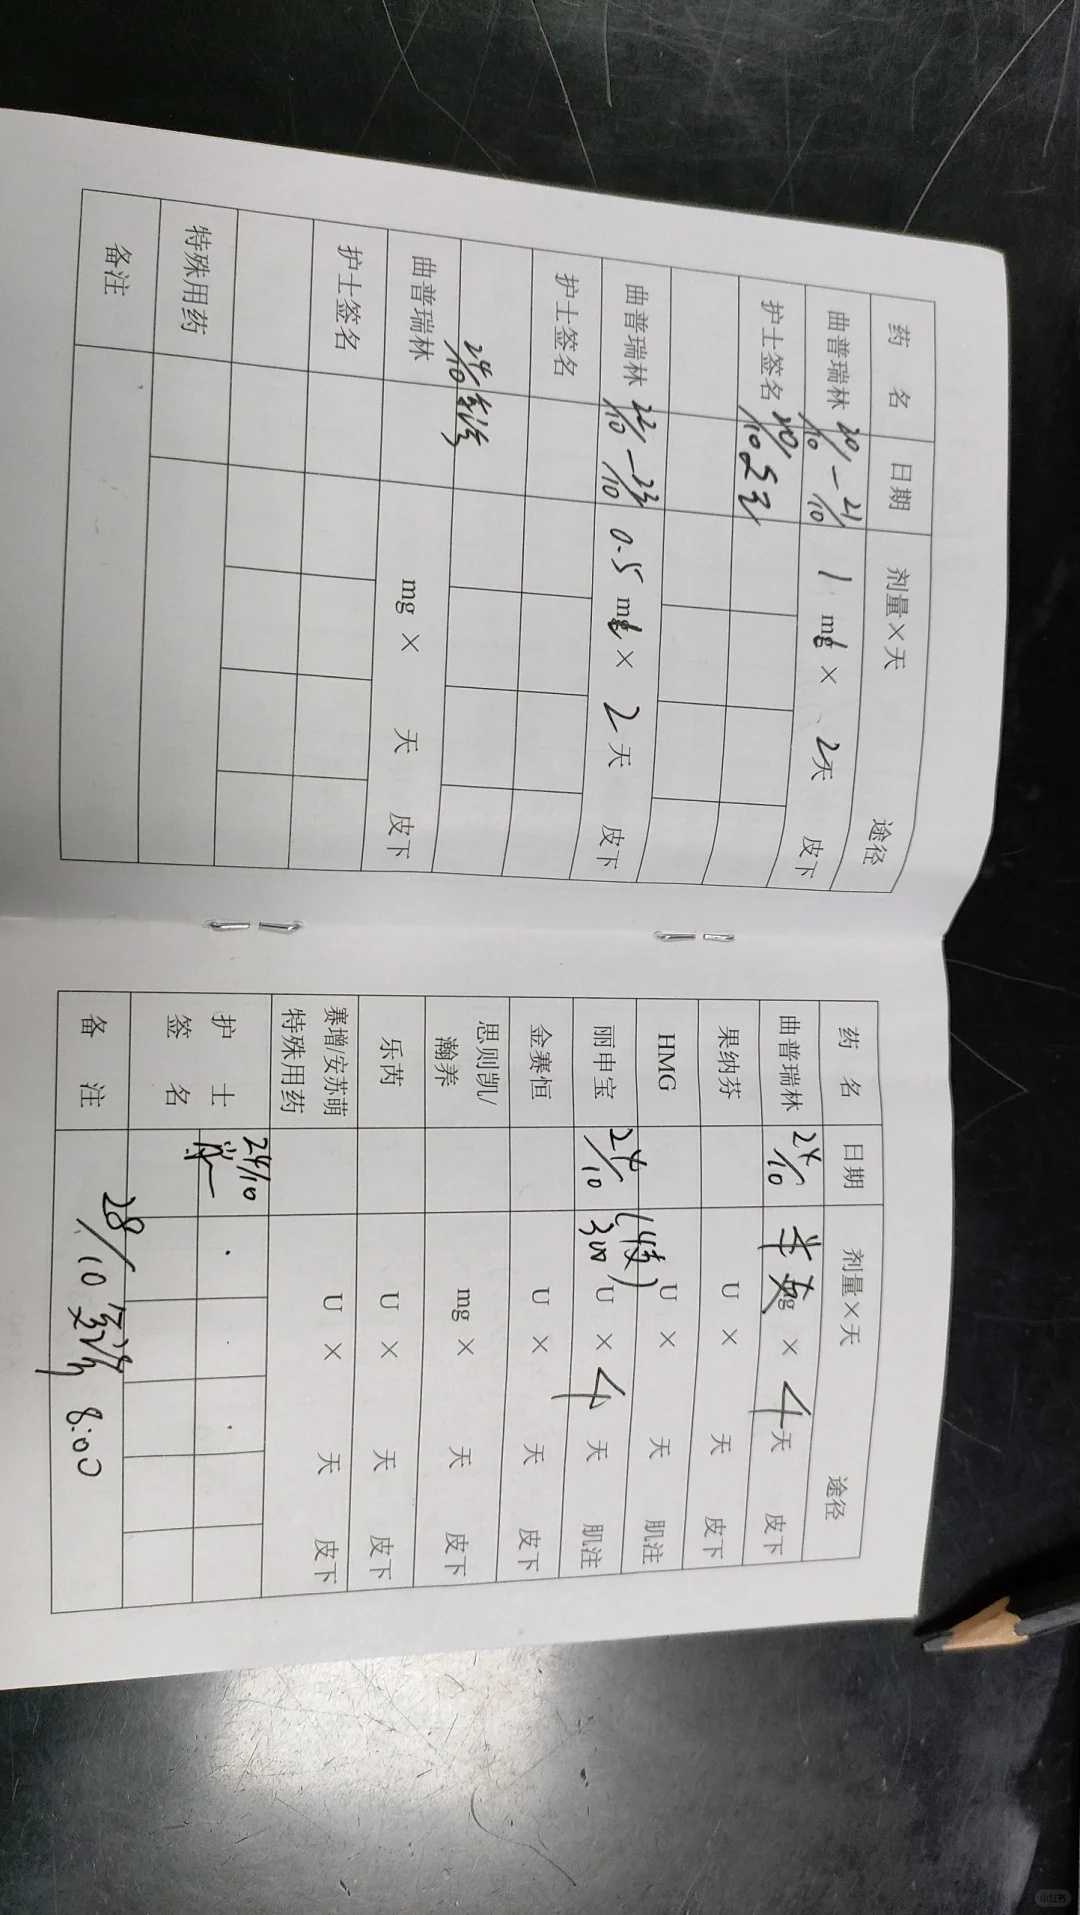 药 名 日期 剂量×天 途径
曲普瑞林 20/10—21/10 1 mg × 2天 皮下
护士签名 20/10
曲普瑞林 22/10—23/10 0.5 mg × 2天 皮下
护士签名
24/10
曲普瑞林 mg × 天 皮下
护士签名
特殊用药
备注
药 名 日期 剂量×天 途径
曲普瑞林 24/10 半 × 4天 皮下
果纳芬 U × 天 皮下
HMG U × 天 肌注
丽申宝 24/10 300 U × 4 天 肌注
金赛恒 U × 天 皮下
思则凯/
瀚养 mg × 天 皮下
乐芮 U × 天 皮下
赛增/安苏萌
特殊用药 U × 天 皮下
护 士
签 名 24/10
备 注 28/10 8:00